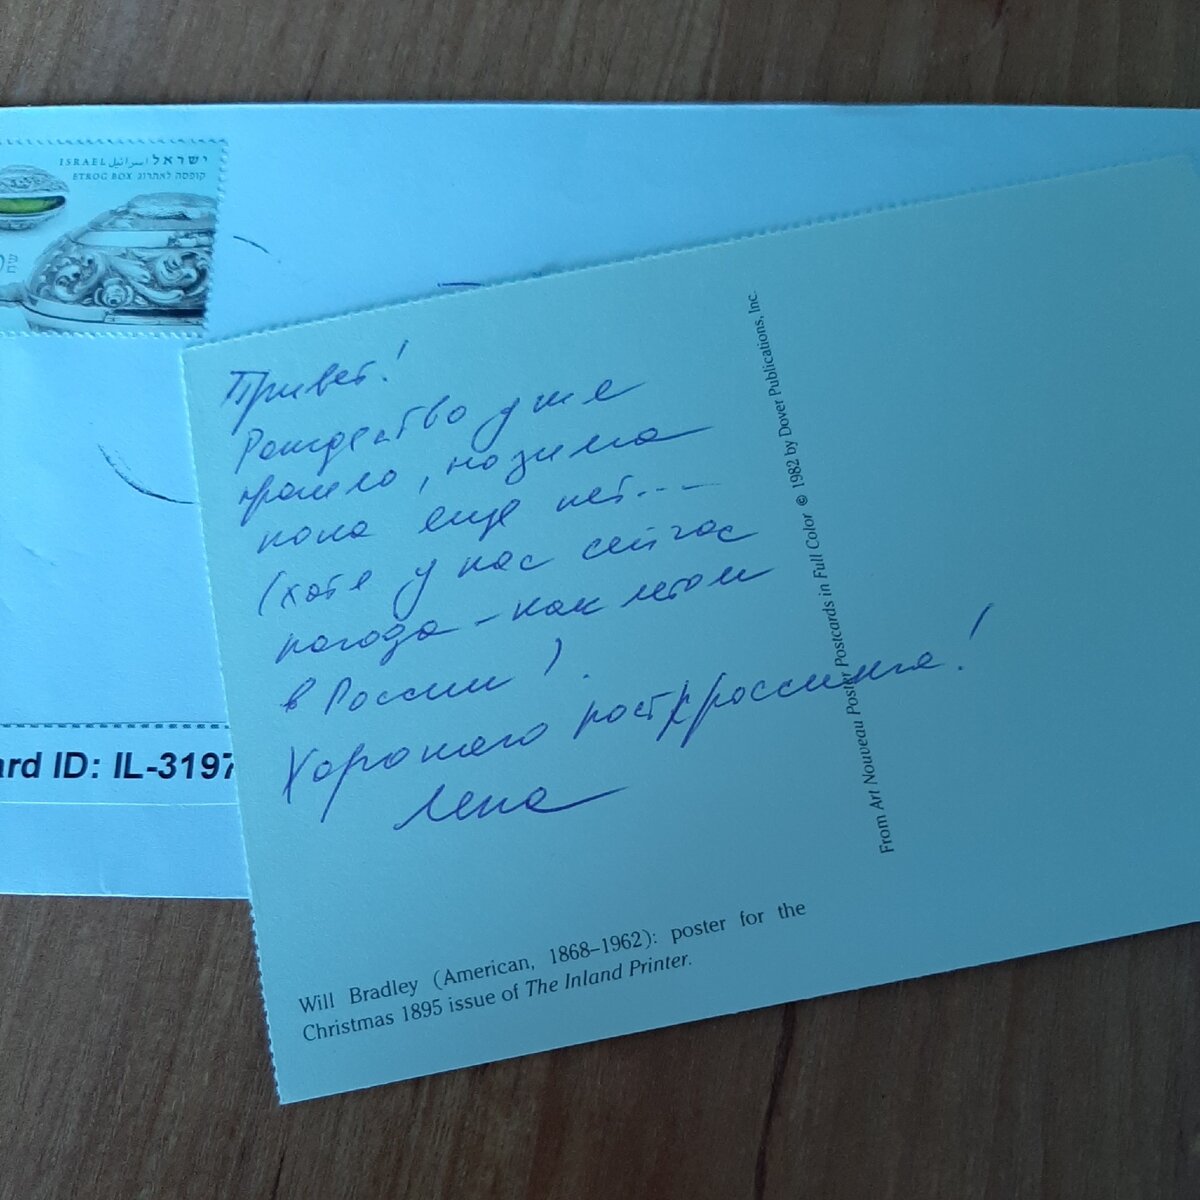 ISRAEL اسرائيل ישראל
ETROG BOX קופסה לאתרוג
Привет!
Рождество уже
прошло, но зима
пока еще нет...
(хотя у нас сейчас
погода - как летом
в России).
Хорошего посткроссинга!
Лена
From Art Nouveau Poster Postcards in Full Color © 1982 by Dover Publications, Inc.
ard ID: IL-3197
Will Bradley (American, 1868–1962): poster for the
Christmas 1895 issue of The Inland Printer.